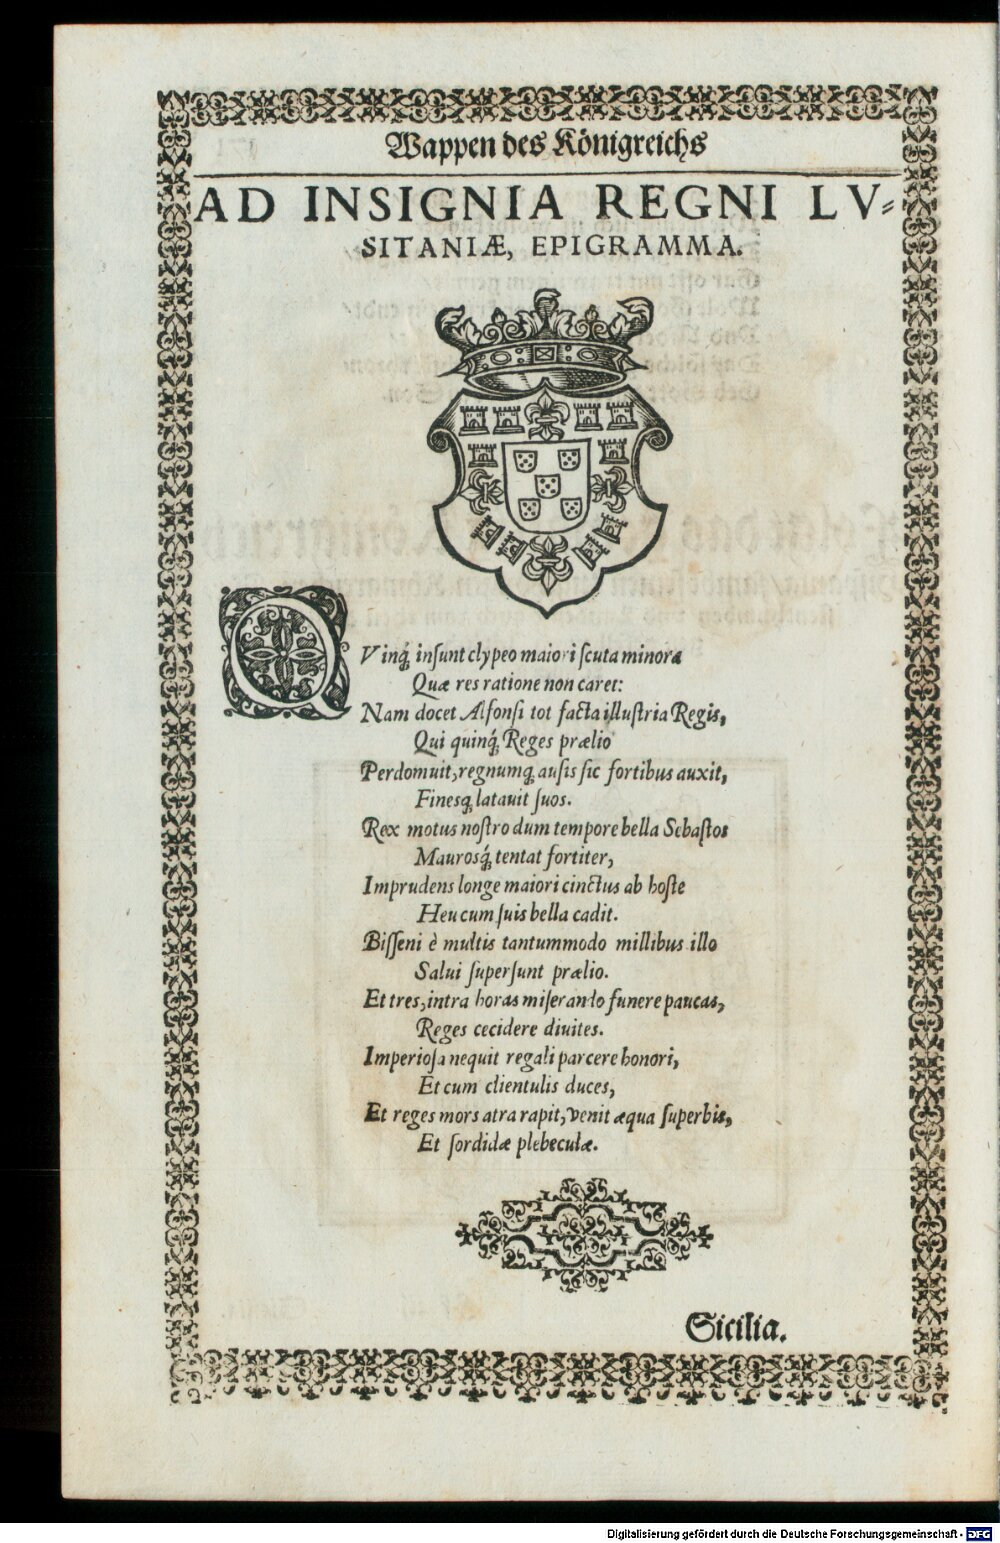 Wappen des Königreichs
AD INSIGNIA REGNI LV⸗
SITANIÆ, EPIGRAMMA.
QVinq́; inſunt clypeo maiori ſcuta minora
Quæ res ratione non caret:
Nam docet Alfonſi tot facta illuſtria Regis,
Qui quinq́; Reges prælio
Perdomuit, regnumq; auſis ſic fortibus auxit,
Finesq; latavit ſuos.
Rex motus noſtro dum tempore bella Sebaſtos
Maurosq́; tentat fortiter,
Imprudens longe maiori cinctus ab hoſte
Heu cum ſuis bella cadit.
Biſſeni è multis tantummodo millibus illo
Salui ſuperſunt prælio.
Et tres, intra horas miserando funere paucas,
Reges cecidere diuites.
Imperioſa nequit regali parcere honori,
Et cum clientulis duces,
Et reges mors atra rapit, venit æqua ſuperbis,
Et ſordidæ plebeculæ.
Sicilia.
Digitalisierung gefördert durch die Deutsche Forschungsgemeinschaft - DFG